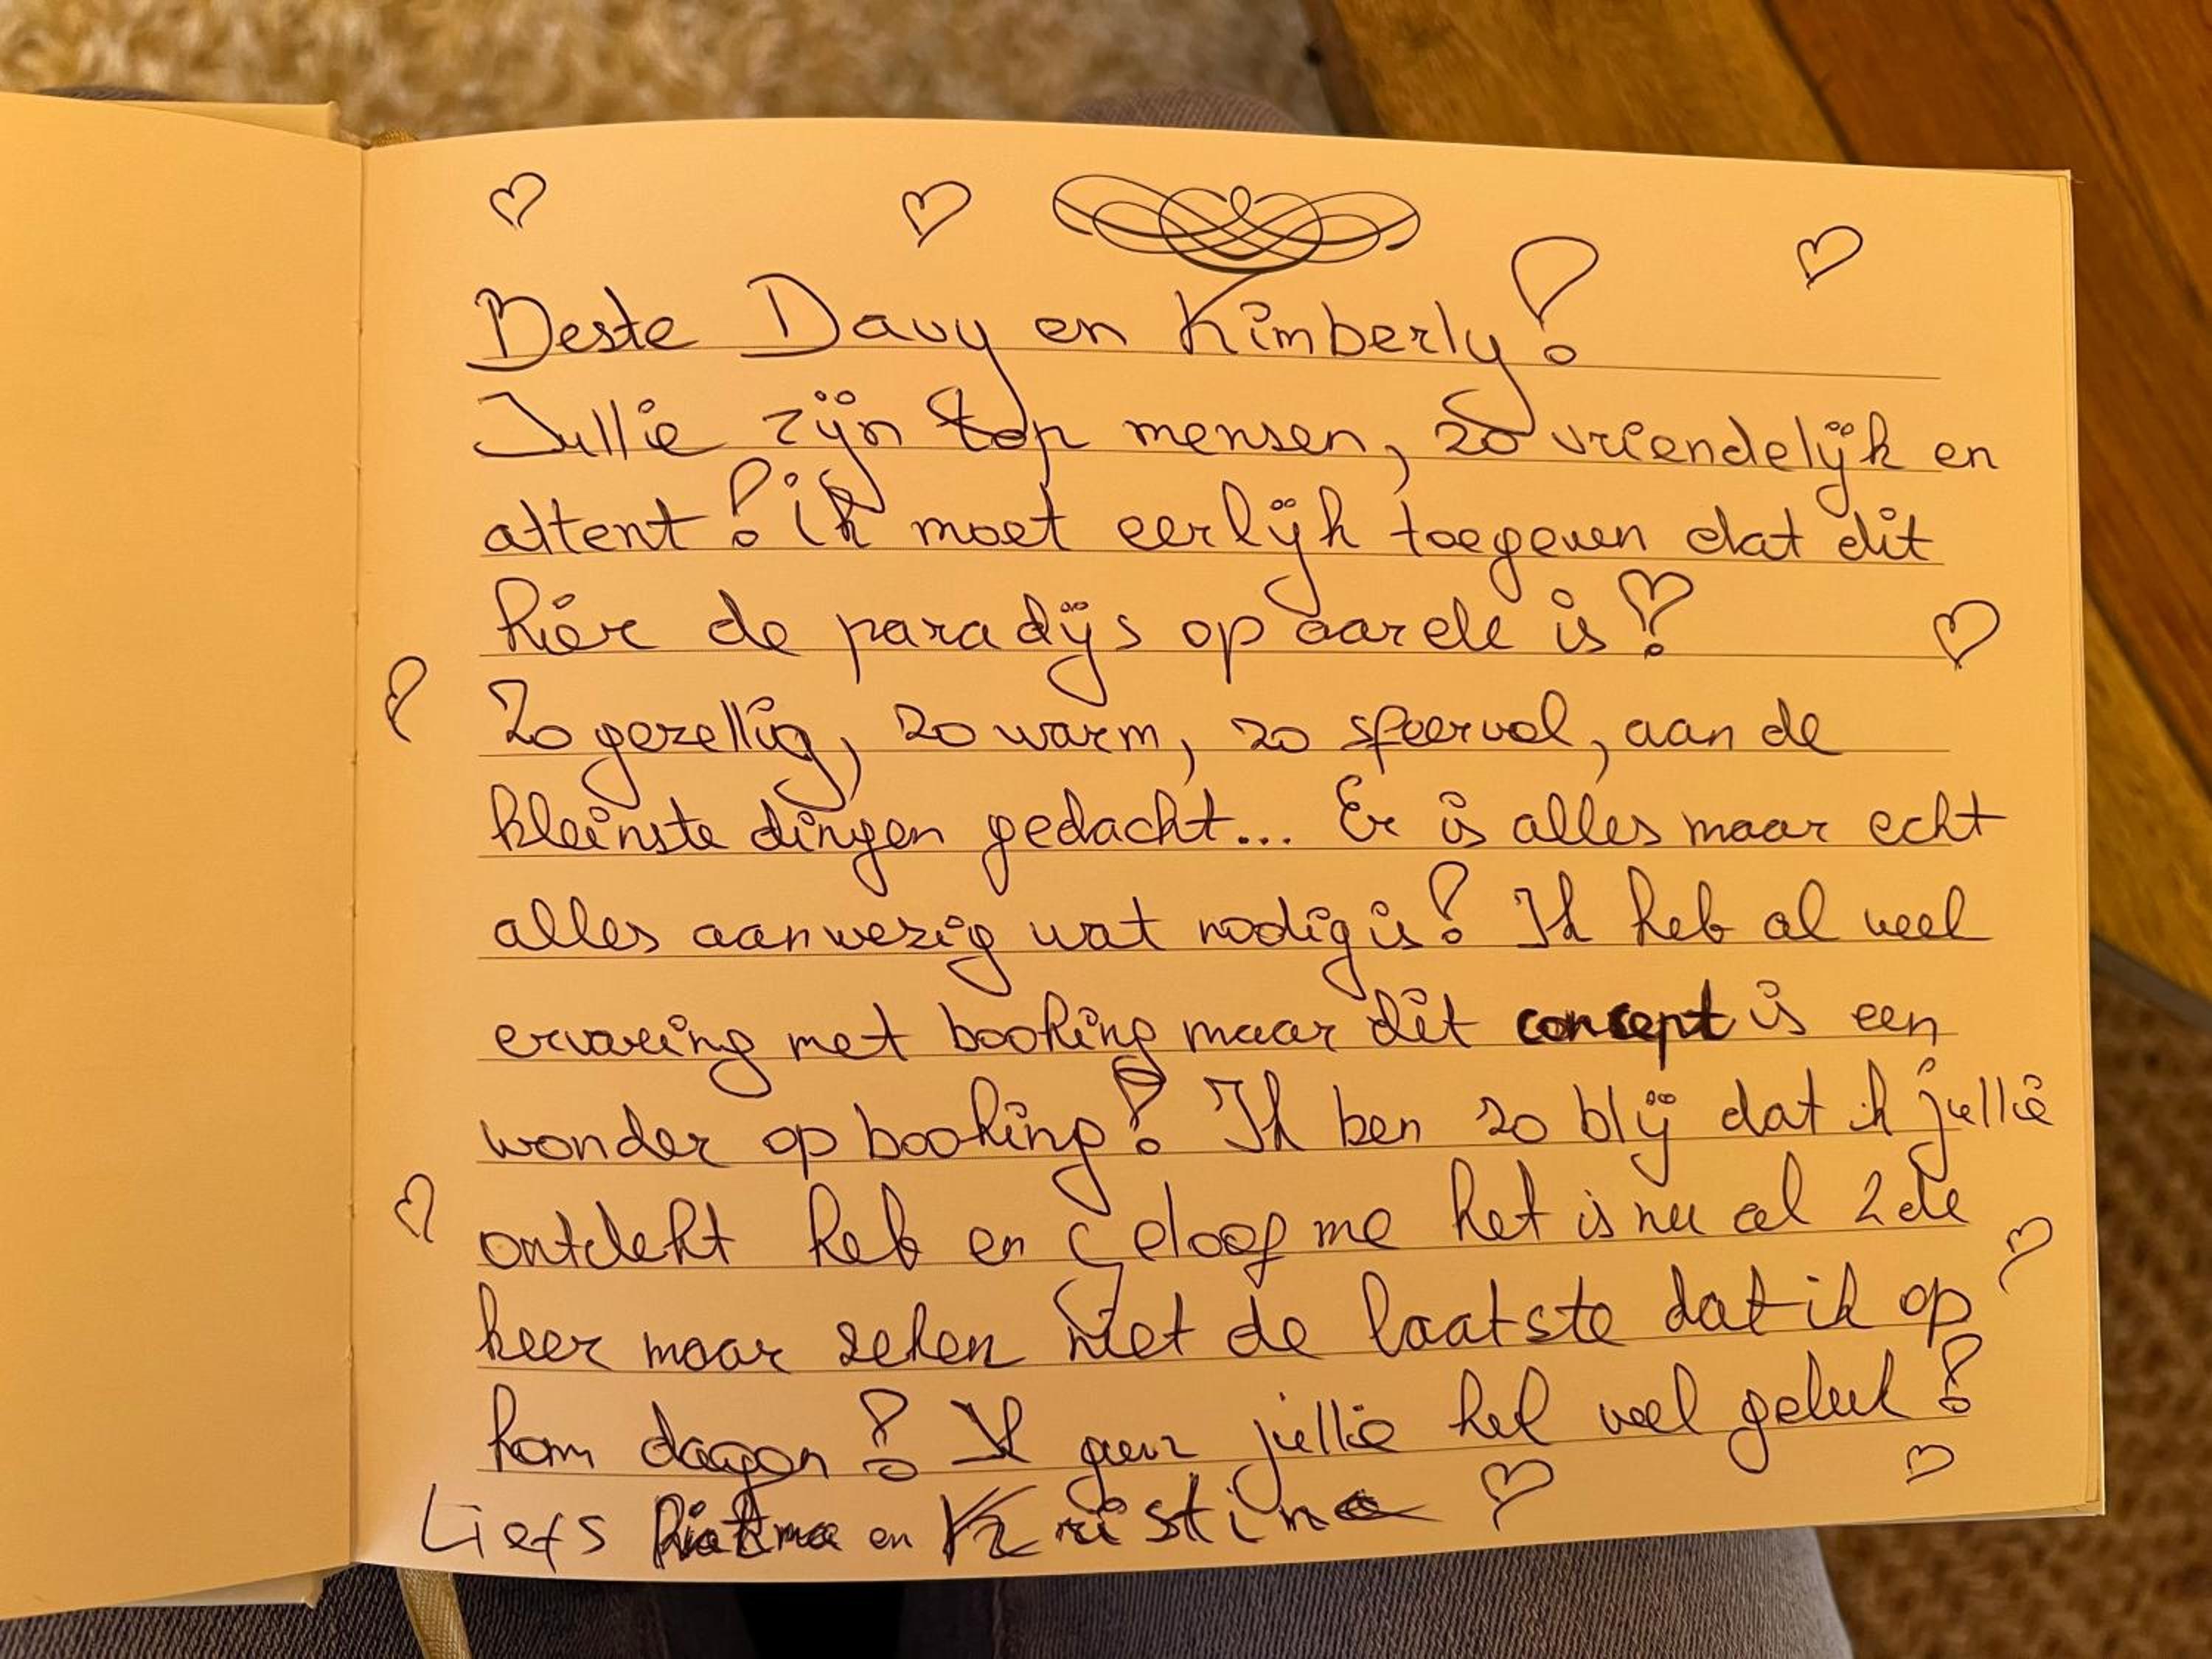 Beste Davy en Kimberly!
Jullie zijn top mensen, zo vriendelijk en
attent! ik moet eerlijk toegeven dat dit
hier de paradijs op aarde is!
Zo gezellig, zo warm, zo sfeervol, aan de
kleinste dingen gedacht... Er is alles maar echt
alles aanwezig wat nodig is! Ik heb al veel
ervaring met booking maar dit concept is een
wonder op booking! Ik ben zo blij dat ik jullie
ontdekt heb en geloof me het is nu al 2de
keer maar zeker niet de laatste dat ik op
kom dagen! Ik gun jullie hel veel geluk!
Liefs en Kristina